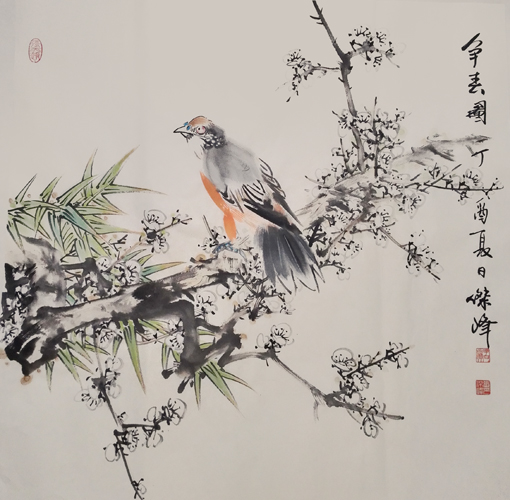 争春图 丁酉夏日 傑峰